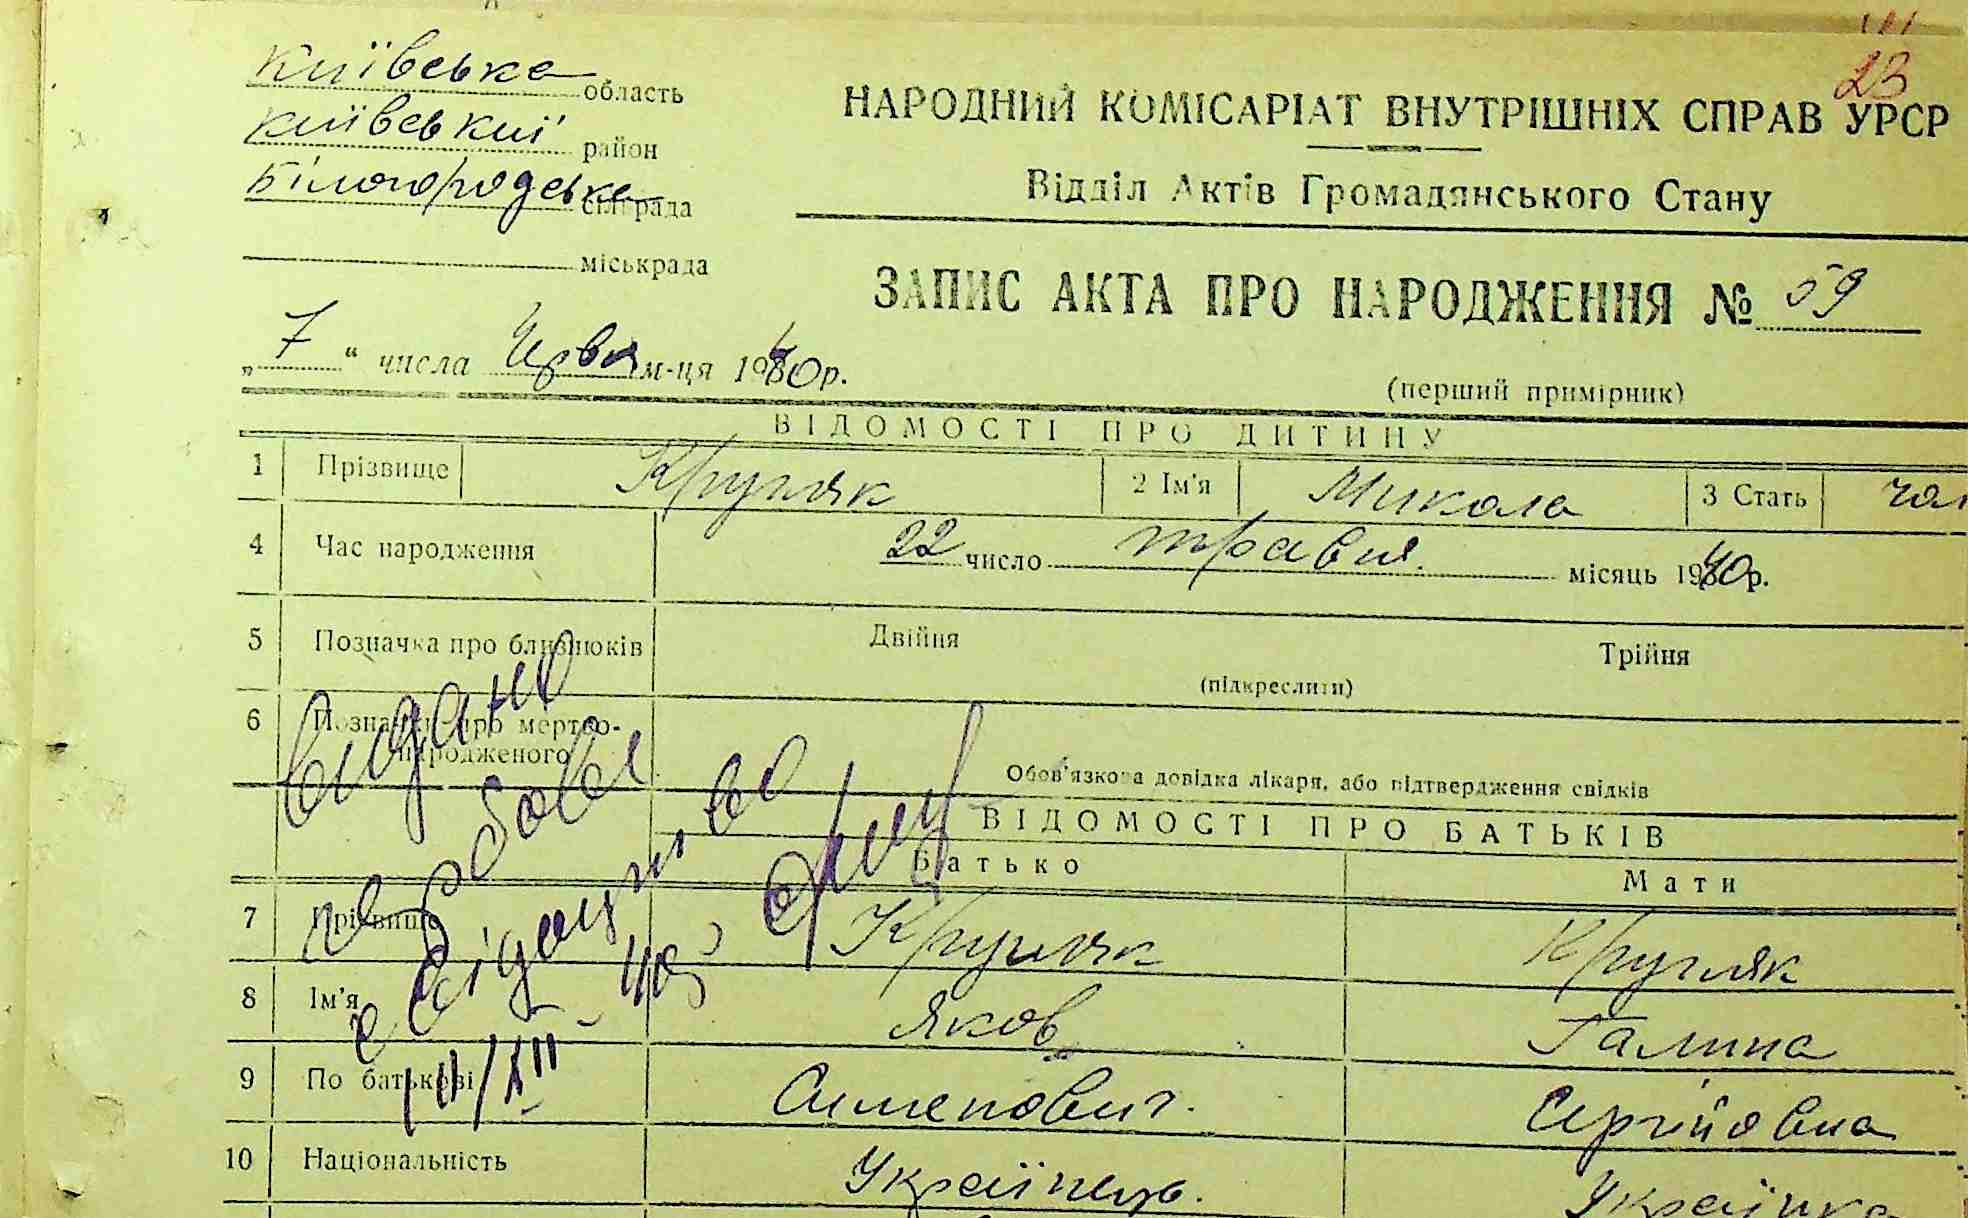 23
Київська область
Київський район
Білогородська сільрада
міськрада
НАРОДНИЙ КОМІСАРІАТ ВНУТРІШНІХ СПРАВ УРСР
Відділ Актів Громадянського Стану
ЗАПИС АКТА ПРО НАРОДЖЕННЯ № 59
„ 7 “ числа Червня м-ця 1940 р.
(перший примірник)
ВІДОМОСТІ ПРО ДИТИНУ
1 Прізвище Кругляк 2 Ім'я Микола 3 Стать чол
4 Час народження 22 число травня. місяць 1940 р.
5 Позначка про близнюків Двійня Трійня
(підкреслити)
6 Позначка про мертво-
народженого
Обов'язкова довідка лікаря, або підтвердження свідків
видано
свідоцтво
ВІДОМОСТІ ПРО БАТЬКІВ
Батько Мати
7 Прізвище Кругляк Кругляк
8 Ім'я Яков Галина
9 По батькові Сименович. Сергійовна
10 Національність Українець. Українка